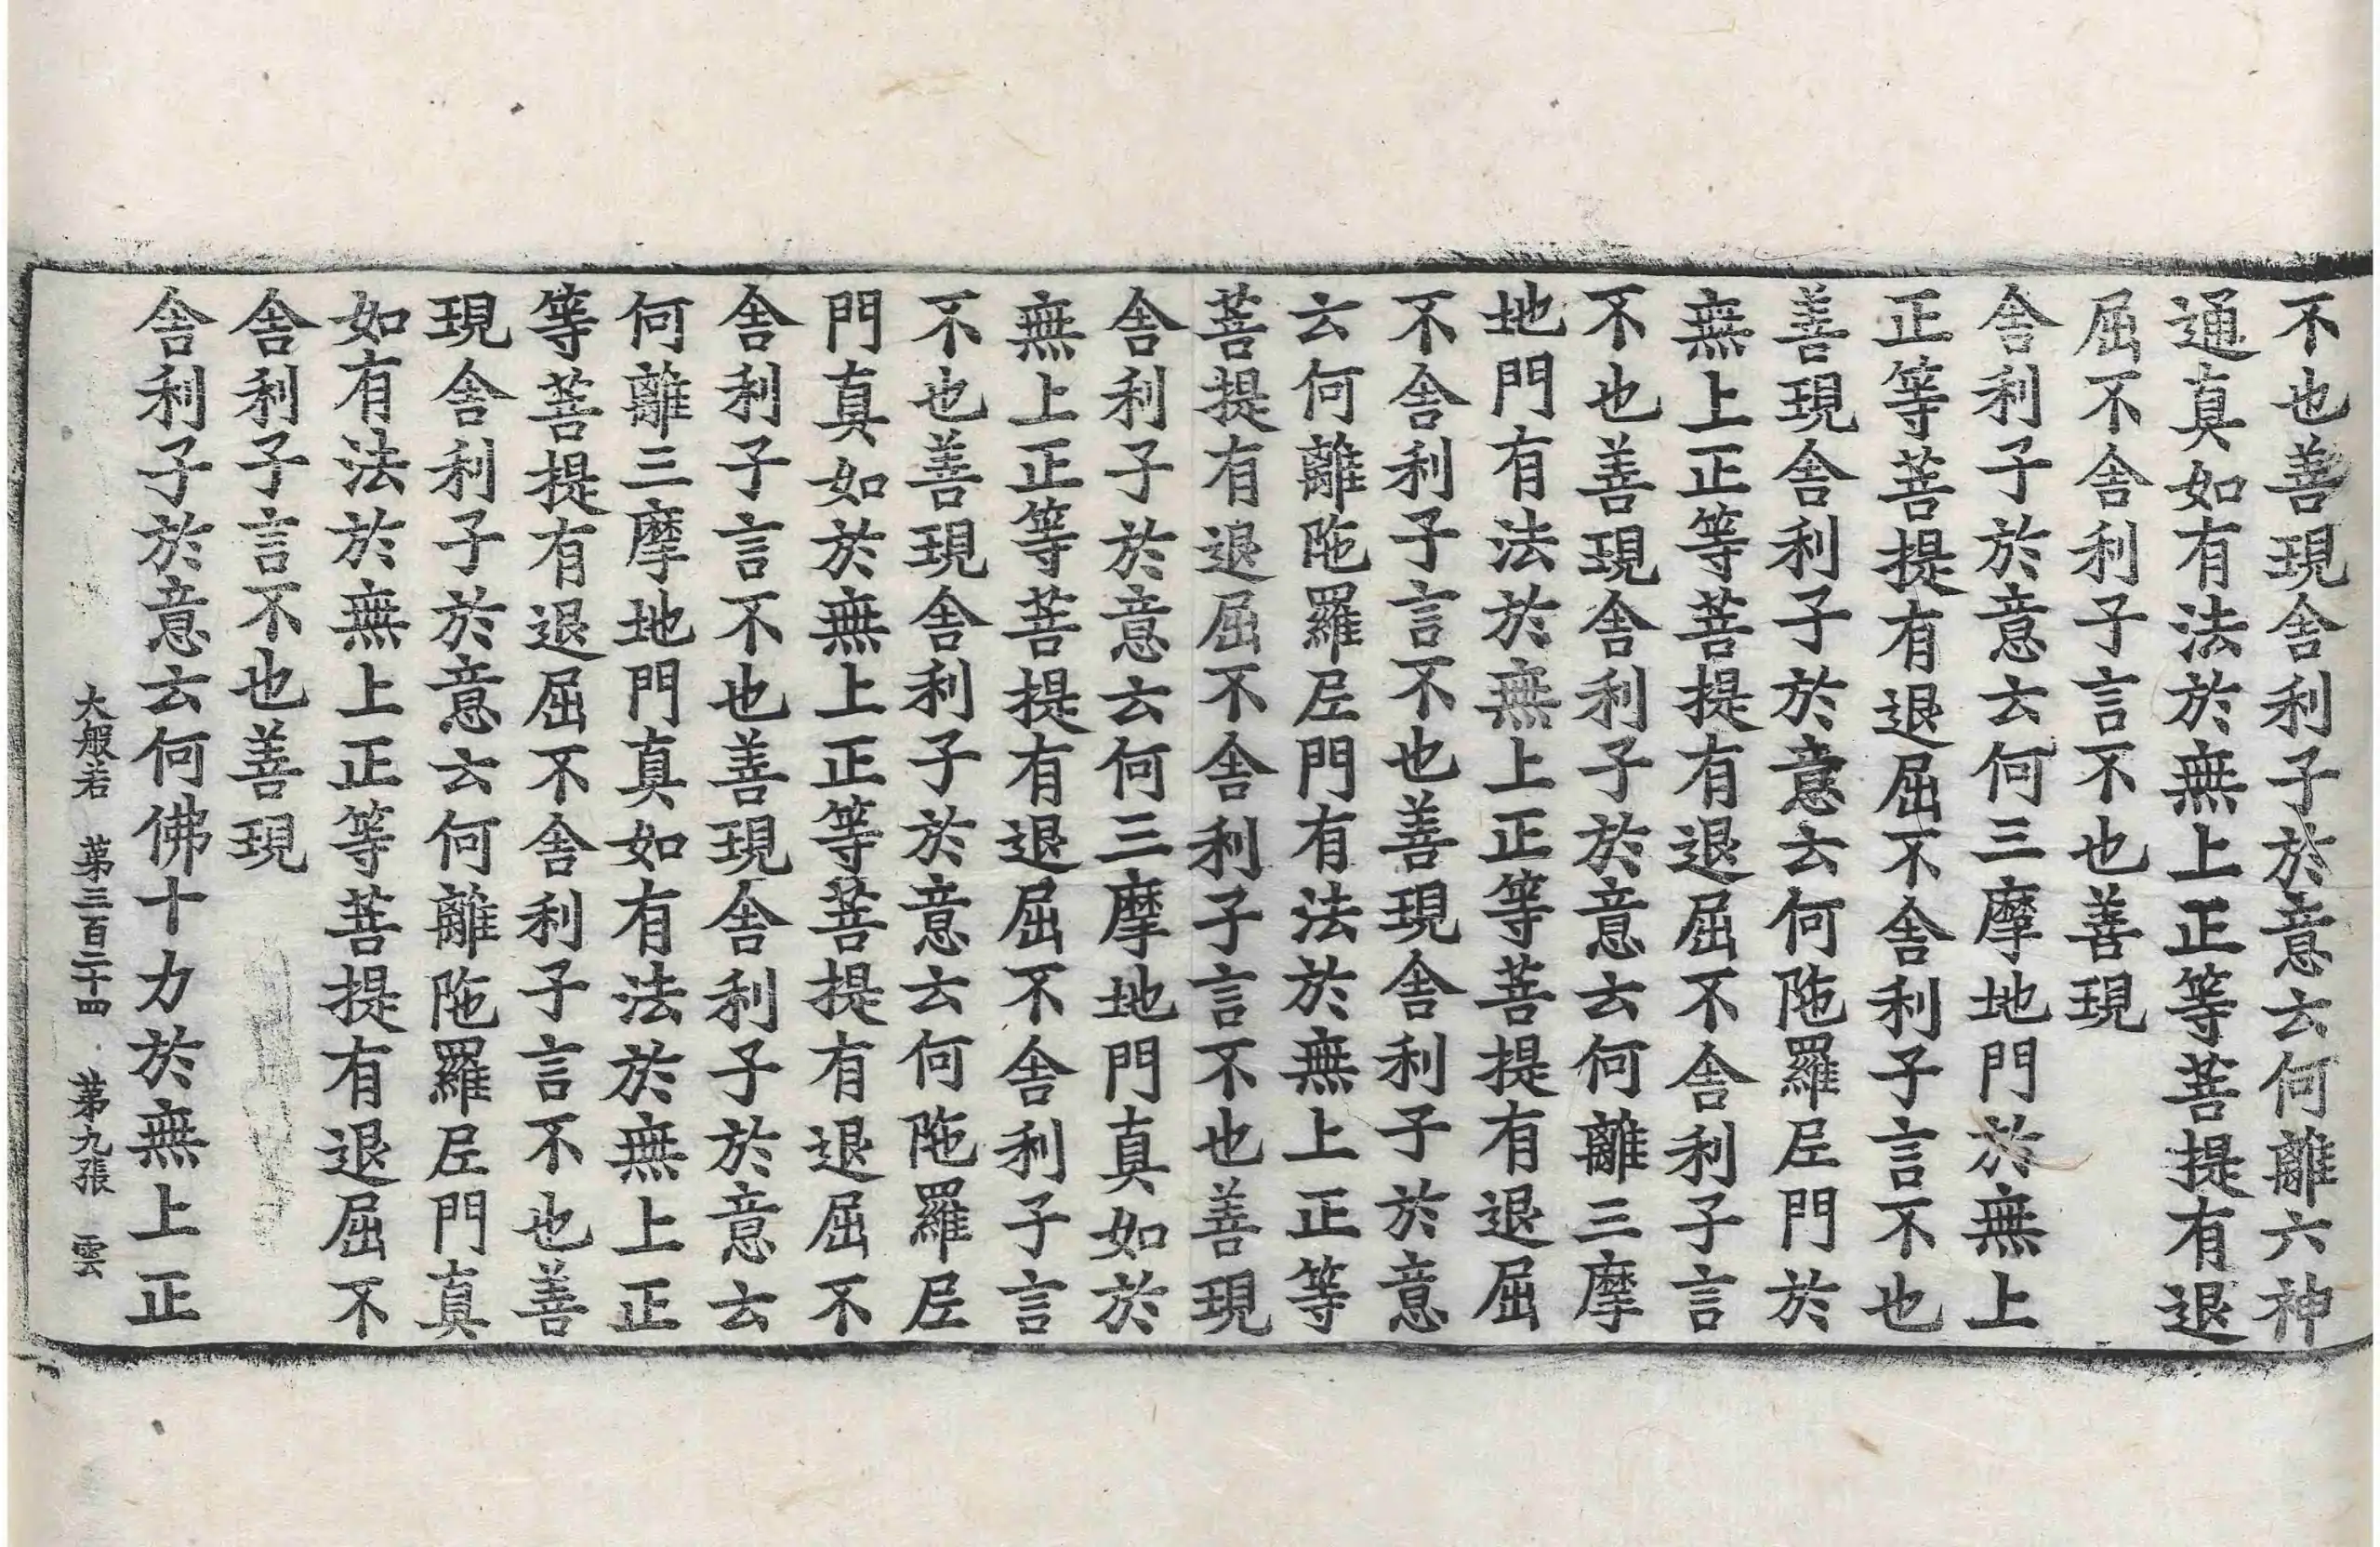 不也善現舍利子於意云何離六神
通真如有法於無上正等菩提有退
屈不舍利子言不也善現
舍利子於意云何三摩地門於無上
正等菩提有退屈不舍利子言不也
善現舍利子於意云何陁羅𡰱門於
無上正等菩提有退屈不舍利子言
不也善現舍利子於意云何離三摩
地門有法於無上正等菩提有退屈
不舍利子言不也善現舍利子於意
云何離陁羅𡰱門有法於無上正等
菩提有退屈不舍利子言不也善現
舍利子於意云何三摩地門真如於
無上正等菩提有退屈不舍利子言
不也善現舍利子於意云何陁羅𡰱
門真如於無上正等菩提有退屈不
舍利子言不也善現舍利子於意云
何離三摩地門真如有法於無上正
等菩提有退屈不舍利子言不也善
現舍利子於意云何離陁羅𡰱門真
如有法於無上正等菩提有退屈不
舍利子言不也善現
舍利子於意云何佛十力於無上正
大般若 第三百二十四 第九張 雲